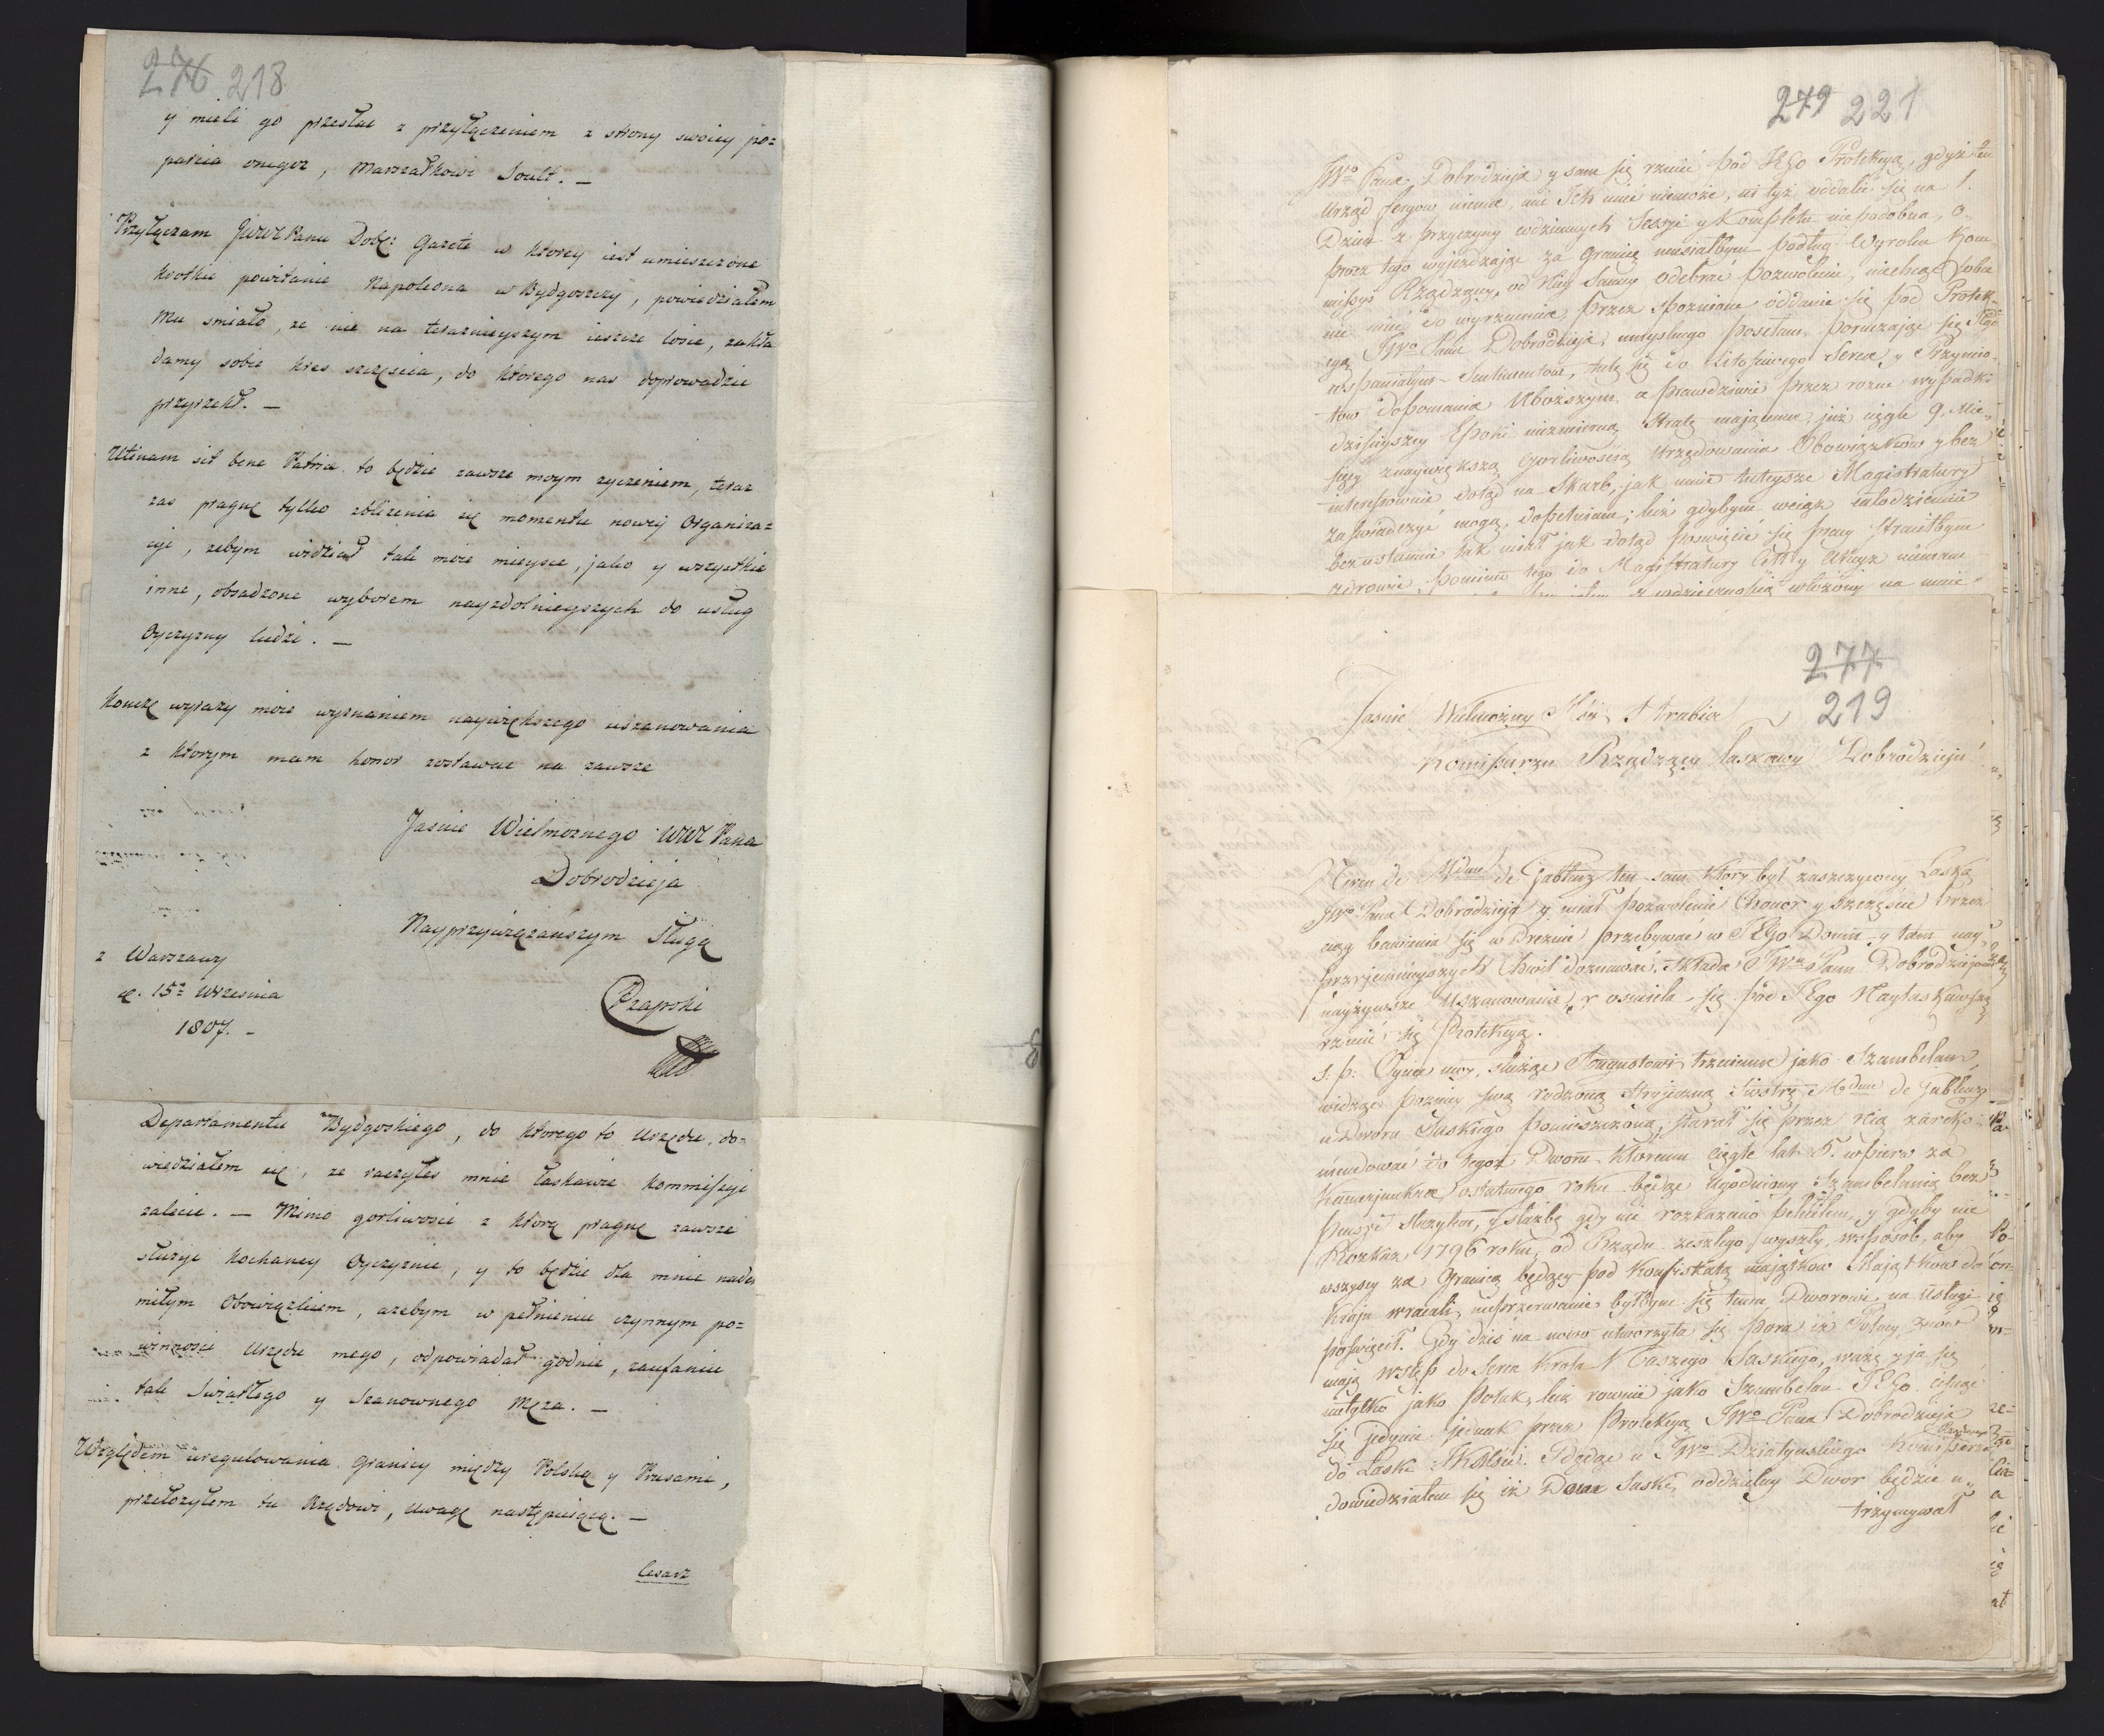 276 218
y mieli go przesłac z przyłączeniem z strony swoiey po=
parcia onegoz, Marszałkowi Soult. —
Przyłączam JWWPanu Dobr: Gazetę w ktorey iest umieszczone
krotkie powitanie Napoleona w Bydgoszczy, powiedziałem
Mu smiało, ze nie na teraznieyszym ieszcze losie, zakła
damy sobie kres szczęscia, do ktorego nas doprowadzic
przyrzekł. —
Utinam sit bene Patriæ to będzie zawsze moym zyczeniem, teraz
zas pragnę tylko zblizenia się momentu nowey Organiza=
cyi, zebym widział tak moie mieysce, jako y wszystkie
inne, obsadzone wyborem nayzdolnieyszych do usług
Oyczyzny ludzi. —
Koncze wyrazy moie wyznaniem naywiększego uszanowania
z ktorym mam honor zostawac na zawsze
Jasnie Wielmoznego WW Pana
Dobrodzieja
Nayprzywiązanszym Sługą
z Warszawy
d. 15º Wrzesnia
1807. —
Czapski
Departamentu Bydgoskiego, do ktorego to Urzędu, do=
wiedziałem się, ze raczyłes mnie łaskawie Kommissyi
zalecic. — Mimo gorliwosci z ktorą pragnę zawsze
słuzyc kochaney Oyczyznie, y to będzie dla mnie nader
miłym Obowiązkiem, azebym w pełnieniu czynnym po=
winnosci Urzędu mego, odpowiadał godnie, zaufaniu
tak Swiatłego y Szanownego Męza. —
Względem uregulowania Granicy między Polską y Prusami,
przełozyłem tu Rządowi, uwagę następuiącą. —
Cesarz
279 221
JWo Pana Dobrodzieja y sam się rzucić pod JEgo Protekcyą, gdyż ten
Urząd feryow niema, ani Ich mieć niemoże, ni też oddalić się na 1.
Dzień z przyczyny codziennych Sessyi y Kompletu niepodobna, o.
procz tego wyjezdzając za Granicę musiałbym podług Wyroku Kom„
missyi Rządzącey, od Niey Samey odebrać pozwolenie, niechcąc sobie
nic mieć do wyrzucenia przez spoznione oddanie się pod Protek„
cyą JWo Pana Dobrodzieja, umyslnego posełam, poruczając się JEgo
wspaniałym Sentimentom, tulę się do Litosciwego Serca y Przymio„
tow dopomania Uboższym, a prawdziwie przez rozne wypadki
dzisieyszey Epoki niezmierną Stratę mającemu, już ciągle 9. Mie„
sięcy znaywiększą gorliwoscią Urzędowania Obowiązkow y bez
interessownie dotąd na Skarb, jak mnie tuteysze Magistratury
zaswiadczyć mogą, dopełniam; lecz gdybym wciąż codziennie
bezustannie tak miał jak dotąd poswięcić się pracy straciłbym
zdrowie, pomimo tego do Magistratury Celł y Akcyz niemam
277
219
Jasnie Wielmożny Mci Hrabio
Kommissarzu Rządzący łaskawy Dobrodzieju
Neveu de Mdme de Gablenz ten sam który był zaszczycony Łaską
JWo Pana Dobrodzieja y miał pozwolenie, honor y szczęscie przez
ciąg bawienia się w Dreznie przebywać w JEgo Domu y tam nay„
przyjemnieyszych Chwil doznawać, składa JWu Panu Dobrodziejowi
nayżywsze Uszanowanie, y osmiela się pod JEgo Naylaskawszą
rzucić się Protekcyą.
S. p. Oyciec moy, służąc Augustowi trzeciemu jako Szambelan,
widząc pozniey swą rodzoną Stryieczną Siostrę Mdme de Gablenz
u Dworu Saskiego pomieszczoną, starał się przez Nią zareko„
mendować do tegoż Dworu, któremu ciągle lat 5. wpierw za
Kamerjunkra, ostatniego roku będąc ugodniony Szambelanią bez
Pensyi służyłem, y służbę gdy mi rozkazano pełniłem, y gdyby nie
Rozkaz 1796 roku, od Rządu zeszłego wyszły, wsposob, aby
wszyscy za Granicą będący pod konfiskatą majątkow Majątkow do
Kraju wracali, nieprzerwanie byłbym się temu Dworowi na usługi
poswięcił. Gdy dzis na nowo utworzyła się pora iż Polacy znow
mają wstęp do Serca Krola Naszego Saskiego, ważę y ja się
nietylko jako Polak, lecz rownie jako Szambelan JEgo cisnąć
się jedynie jednak przez Protekcyą JWo Pana Dobrodzieja
do Łaski JKMsci. Będąc u JWo Działynskiego Kommissarza
dowiedziałem się iż Dwor Saski, oddzielny Dwor będzie u„
trzymywał